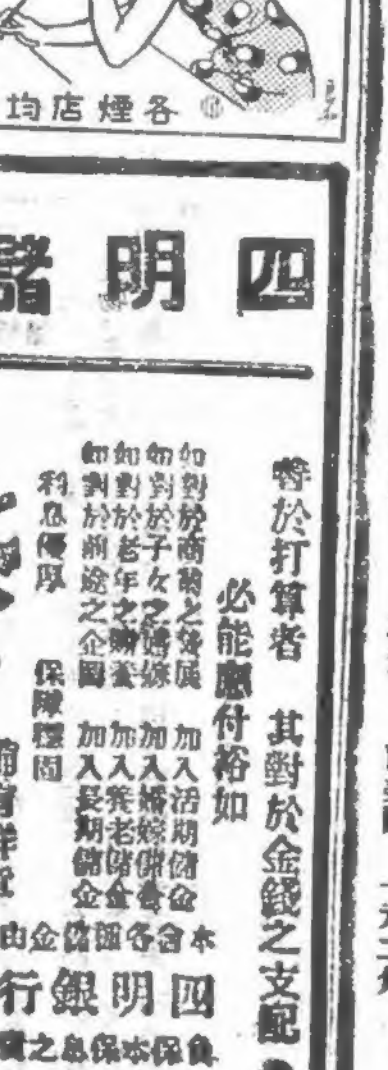 各煙店均
四明儲
善於打算者 其對於金錢之支配
必能應付裕如
如對於商業之發展 加入活期儲金
如對於子女之婚嫁 加入婚嫁儲金
如對於老年之贍養 加入養老儲金
如對於前途之企圖 加入長期儲金
利息優厚 保障穩固
本會各種儲金由
四明銀行
負保本保息之責